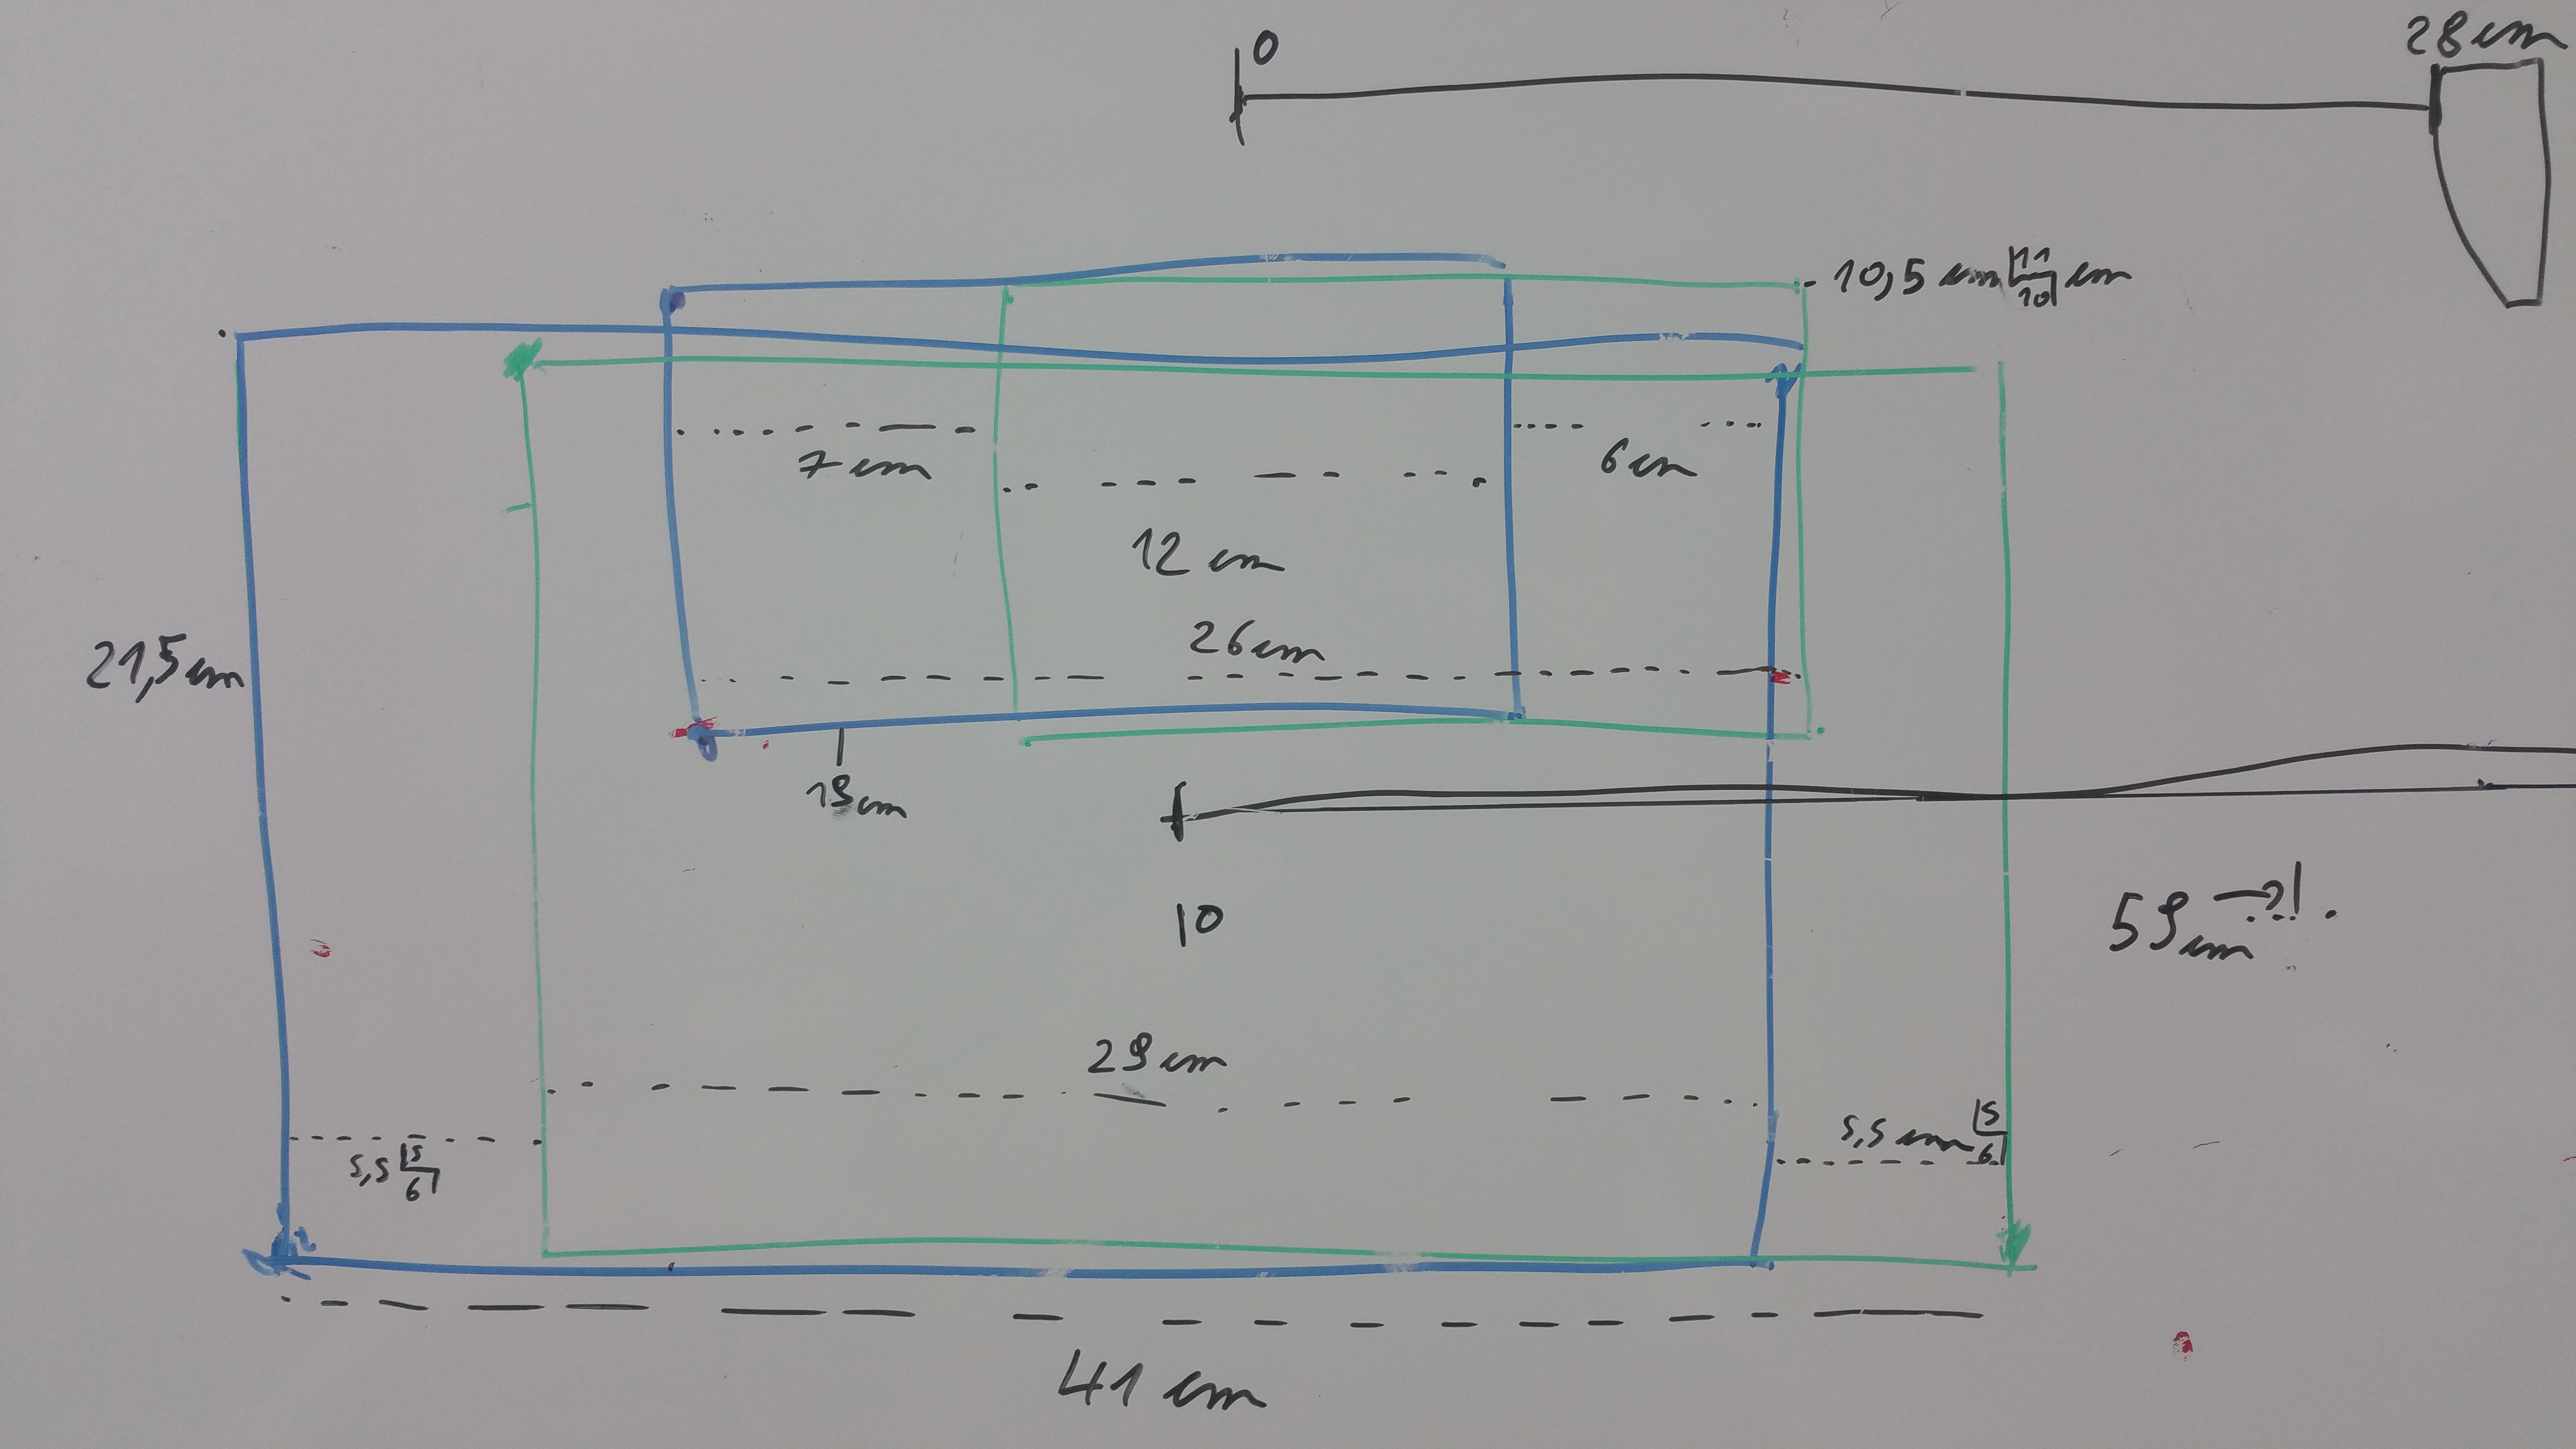 0
28 cm
10,5 cm 11/10 cm
7 cm
6 cm
12 cm
26 cm
21,5 cm
19 cm
10
59 cm →?!.
29 cm
5,5 5/6
5,5 cm 5/6
41 cm